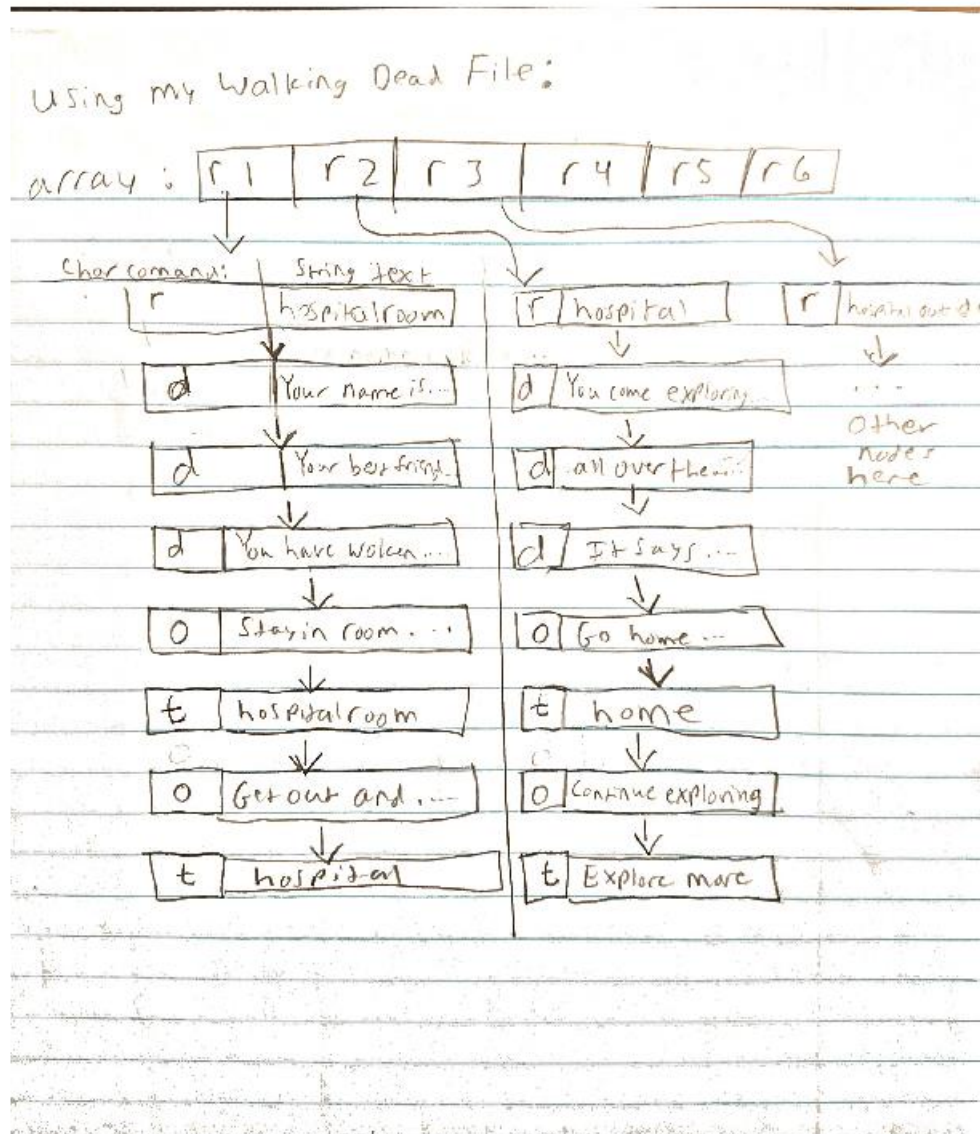 Using my Walking Dead File:
array: r 1 r 2 r 3 r 4 r5 r6
Char comand: String text
r hospitalroom
d Your name is...
d Your best friend...
d You have woken...
o Stay in room....
t hospitalroom
o Get out and....
t hospital
r hospital
d You come exploring...
d all over the....
d It says...
o Go home...
t home
o Continue exploring
t Explore more
r hospital
....
other
nodes
here